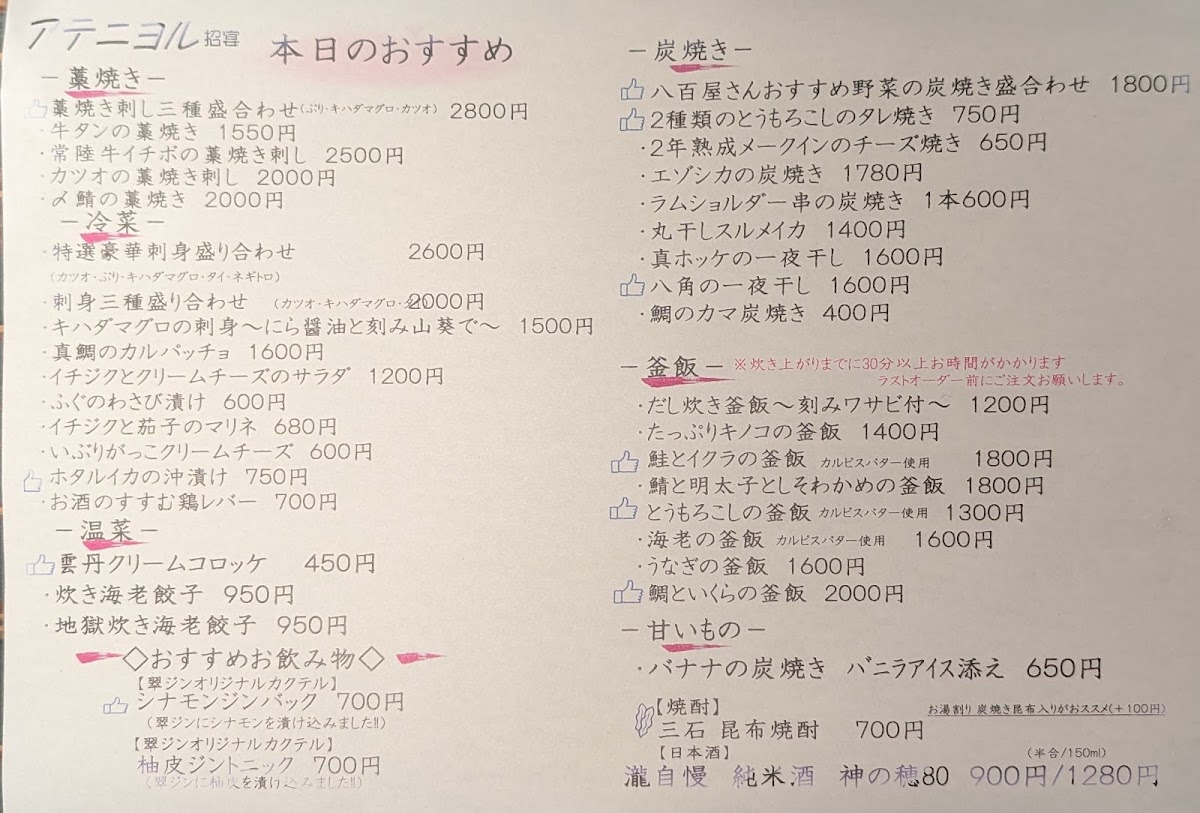 アテニヨル 招宴
本日のおすすめ
－藁焼き－
藁焼き刺し三種盛合わせ(ぶり・キハダマグロ・カツオ) 2800円
・牛タンの藁焼き 1550円
・常陸牛イチボの藁焼き刺し 2500円
・カツオの藁焼き刺し 2000円
・〆鯖の藁焼き 2000円
－冷菜－
・特選豪華刺身盛り合わせ 2600円
(カツオ・ぶり・キハダマグロ・タイ・ネギトロ)
・刺身三種盛り合わせ (カツオ・キハダマグロ・ 2000円
・キハダマグロの刺身～にら醤油と刻み山葵で～ 1500円
・真鯛のカルパッチョ 1600円
・イチジクとクリームチーズのサラダ 1200円
・ふぐのわさび漬け 600円
・イチジクと茄子のマリネ 680円
・いぶりがっこクリームチーズ 600円
ホタルイカの沖漬け 750円
・お酒のすすむ鶏レバー 700円
－温菜－
雲丹クリームコロッケ 450円
・炊き海老餃子 950円
・地獄炊き海老餃子 950円
◇おすすめお飲み物◇
【翠ジンオリジナルカクテル】
シナモンジンバック 700円
(翠ジンにシナモンを漬け込みました!!)
【翠ジンオリジナルカクテル】
柚皮ジントニック 700円
(翠ジンに柚皮を漬け込みました!!)
－炭焼き－
八百屋さんおすすめ野菜の炭焼き盛合わせ 1800円
2種類のとうもろこしのタレ焼き 750円
・2年熟成メークインのチーズ焼き 650円
・エゾシカの炭焼き 1780円
・ラムショルダー串の炭焼き 1本600円
・丸干しスルメイカ 1400円
・真ホッケの一夜干し 1600円
八角の一夜干し 1600円
・鯛のカマ炭焼き 400円
－釜飯－ ※炊き上がりまでに30分以上お時間がかかります
ラストオーダー前にご注文お願いします。
・だし炊き釜飯～刻みワサビ付～ 1200円
・たっぷりキノコの釜飯 1400円
鮭とイクラの釜飯 カルピスバター使用 1800円
・鯖と明太子としそわかめの釜飯 1800円
とうもろこしの釜飯 カルピスバター使用 1300円
・海老の釜飯 カルピスバター使用 1600円
・うなぎの釜飯 1600円
鯛といくらの釜飯 2000円
－甘いもの－
・バナナの炭焼き バニラアイス添え 650円
【焼酎】 お湯割り 炭焼き昆布入りがおススメ(＋100円)
三石 昆布焼酎 700円
【日本酒】 (半合/150ml)
瀧自慢 純米酒 神の穂80 900円/1280円